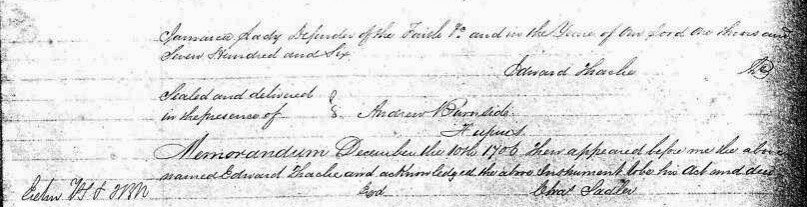 Jamaica Lady Defender of the Faith &c. and in the Year of Our Lord One thous and
Seven Hundred and Six
Edward Thache
Sealed and delivered
in the presence of Andrew Burnside
Memorandum December the 10th 1706 then appeared before me the above
named Edward Thache and acknowledged the above Instrument to be his Act and deed
Exd Sadler